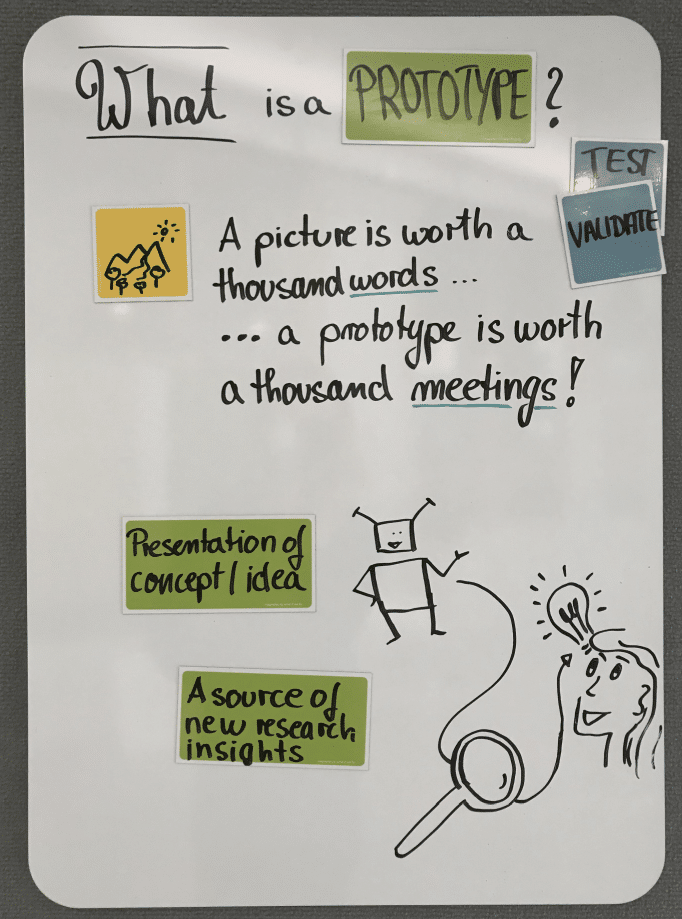 What is a PROTOTYPE?
TEST
VALIDATE
A picture is worth a
thousand words ...
... a prototype is worth
a thousand meetings!
Presentation of
concept / idea
A source of
new research
insights